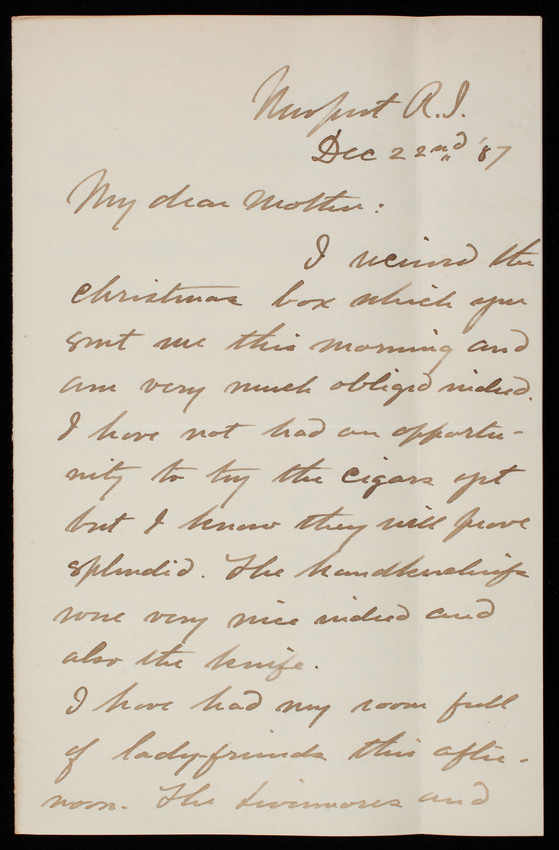 Newport R.I.
Dec 22nd '87
My dear Mother:
I received the
christmas box which you
sent me this morning and
am very much obliged indeed.
I have not had an opportu-
nity to try the cigars yet
but I know they will prove
splendid. The handkerchiefs
were very nice indeed and
also the knife.
I have had my room full
of lady-friends this after-
noon. The Livermores and